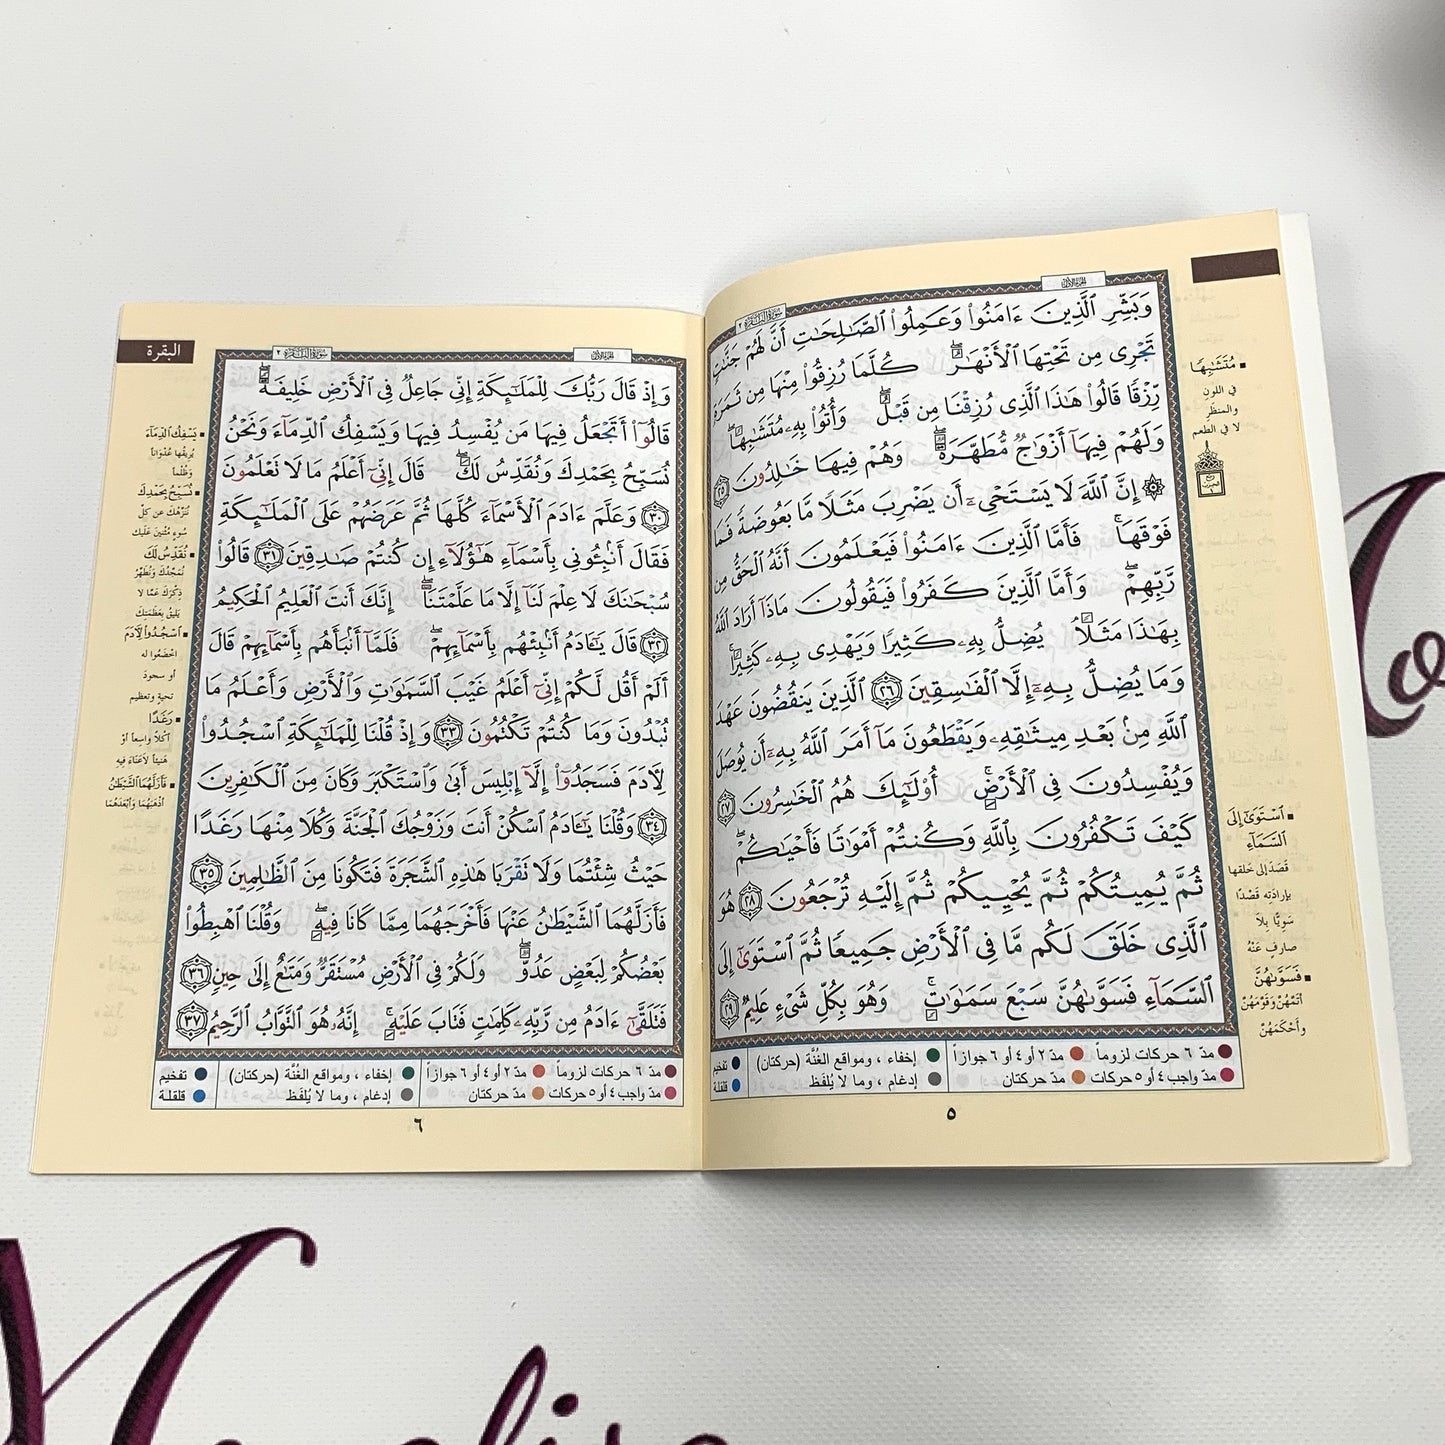 الجزء الأول
سورة البقرة ٢
وَبَشِّرِ ٱلَّذِينَ ءَامَنُوا۟ وَعَمِلُوا۟ ٱلصَّٰلِحَٰتِ أَنَّ لَهُمْ جَنَّٰتٍ
تَجْرِى مِن تَحْتِهَا ٱلْأَنْهَٰرُ كُلَّمَا رُزِقُوا۟ مِنْهَا مِن ثَمَرَةٍ
رِّزْقًا قَالُوا۟ هَٰذَا ٱلَّذِى رُزِقْنَا مِن قَبْلُ وَأُتُوا۟ بِهِۦ مُتَشَٰبِهًا
وَلَهُمْ فِيهَآ أَزْوَٰجٌ مُّطَهَّرَةٌ وَهُمْ فِيهَا خَٰلِدُونَ ٢٥
۞ إِنَّ ٱللَّهَ لَا يَسْتَحْىِۦٓ أَن يَضْرِبَ مَثَلًا مَّا بَعُوضَةً فَمَا
فَوْقَهَا فَأَمَّا ٱلَّذِينَ ءَامَنُوا۟ فَيَعْلَمُونَ أَنَّهُ ٱلْحَقُّ مِن
رَّبِّهِمْ وَأَمَّا ٱلَّذِينَ كَفَرُوا۟ فَيَقُولُونَ مَاذَآ أَرَادَ ٱللَّهُ
بِهَٰذَا مَثَلًا يُضِلُّ بِهِۦ كَثِيرًا وَيَهْدِى بِهِۦ كَثِيرًا
وَمَا يُضِلُّ بِهِۦٓ إِلَّا ٱلْفَٰسِقِينَ ٢٦ ٱلَّذِينَ يَنقُضُونَ عَهْدَ
ٱللَّهِ مِنۢ بَعْدِ مِيثَٰقِهِۦ وَيَقْطَعُونَ مَآ أَمَرَ ٱللَّهُ بِهِۦٓ أَن يُوصَلَ
وَيُفْسِدُونَ فِى ٱلْأَرْضِ أُو۟لَٰٓئِكَ هُمُ ٱلْخَٰسِرُونَ ٢٧
كَيْفَ تَكْفُرُونَ بِٱللَّهِ وَكُنتُمْ أَمْوَٰتًا فَأَحْيَٰكُمْ
ثُمَّ يُمِيتُكُمْ ثُمَّ يُحْيِيكُمْ ثُمَّ إِلَيْهِ تُرْجَعُونَ ٢٨ هُوَ
ٱلَّذِى خَلَقَ لَكُم مَّا فِى ٱلْأَرْضِ جَمِيعًا ثُمَّ ٱسْتَوَىٰٓ إِلَى
ٱلسَّمَآءِ فَسَوَّىٰهُنَّ سَبْعَ سَمَٰوَٰتٍ وَهُوَ بِكُلِّ شَىْءٍ عَلِيمٌ ٢٩
■ مُتَشَٰبِهًا
في اللون
والمنظر
لا في الطعم
■ ٱسْتَوَىٰٓ إِلَى
ٱلسَّمَآءِ
قَصَدَ إلى خَلقها
بإرادَتِه قَصْدًا
سَوِيًّا بِلاَ
صارِفٍ عَنْهُ
■ فَسَوَّىٰهُنَّ
أَتَمَّهُنَّ وقَوَّمَهُنَّ
وأَحْكَمَهُنَّ
مدّ ٦ حركات لزوماً مدّ ٢ أو ٤ أو ٦ جوازاً إخفاء ، ومواقع الغُنَّة (حركتان) تفخيم
مدّ واجب ٤ أو ٥ حركات مدّ حركتان إدغام ، وما لا يُلفَظ قلقلة
٥
البقرة
الجزء الأول
سورة البقرة ٢
وَإِذْ قَالَ رَبُّكَ لِلْمَلَٰٓئِكَةِ إِنِّى جَاعِلٌ فِى ٱلْأَرْضِ خَلِيفَةً
قَالُوٓا۟ أَتَجْعَلُ فِيهَا مَن يُفْسِدُ فِيهَا وَيَسْفِكُ ٱلدِّمَآءَ وَنَحْنُ
نُسَبِّحُ بِحَمْدِكَ وَنُقَدِّسُ لَكَ قَالَ إِنِّىٓ أَعْلَمُ مَا لَا تَعْلَمُونَ
٣٠ وَعَلَّمَ ءَادَمَ ٱلْأَسْمَآءَ كُلَّهَا ثُمَّ عَرَضَهُمْ عَلَى ٱلْمَلَٰٓئِكَةِ
فَقَالَ أَنۢبِـُٔونِى بِأَسْمَآءِ هَٰٓؤُلَآءِ إِن كُنتُمْ صَٰدِقِينَ ٣١ قَالُوا۟
سُبْحَٰنَكَ لَا عِلْمَ لَنَآ إِلَّا مَا عَلَّمْتَنَآ إِنَّكَ أَنتَ ٱلْعَلِيمُ ٱلْحَكِيمُ
٣٢ قَالَ يَٰٓـَٔادَمُ أَنۢبِئْهُم بِأَسْمَآئِهِمْ فَلَمَّآ أَنۢبَأَهُم بِأَسْمَآئِهِمْ قَالَ
أَلَمْ أَقُل لَّكُمْ إِنِّىٓ أَعْلَمُ غَيْبَ ٱلسَّمَٰوَٰتِ وَٱلْأَرْضِ وَأَعْلَمُ مَا
تُبْدُونَ وَمَا كُنتُمْ تَكْتُمُونَ ٣٣ وَإِذْ قُلْنَا لِلْمَلَٰٓئِكَةِ ٱسْجُدُوا۟
لِـَٔادَمَ فَسَجَدُوٓا۟ إِلَّآ إِبْلِيسَ أَبَىٰ وَٱسْتَكْبَرَ وَكَانَ مِنَ ٱلْكَٰفِرِينَ
٣٤ وَقُلْنَا يَٰٓـَٔادَمُ ٱسْكُنْ أَنتَ وَزَوْجُكَ ٱلْجَنَّةَ وَكُلَا مِنْهَا رَغَدًا
حَيْثُ شِئْتُمَا وَلَا تَقْرَبَا هَٰذِهِ ٱلشَّجَرَةَ فَتَكُونَا مِنَ ٱلظَّٰلِمِينَ ٣٥
فَأَزَلَّهُمَا ٱلشَّيْطَٰنُ عَنْهَا فَأَخْرَجَهُمَا مِمَّا كَانَا فِيهِ وَقُلْنَا ٱهْبِطُوا۟
بَعْضُكُمْ لِبَعْضٍ عَدُوٌّ وَلَكُمْ فِى ٱلْأَرْضِ مُسْتَقَرٌّ وَمَتَٰعٌ إِلَىٰ حِينٍ ٣٦
فَتَلَقَّىٰٓ ءَادَمُ مِن رَّبِّهِۦ كَلِمَٰتٍ فَتَابَ عَلَيْهِ إِنَّهُۥ هُوَ ٱلتَّوَّابُ ٱلرَّحِيمُ ٣٧
■ يَسْفِكُ ٱلدِّمَآءَ
يُريقُها عُدْواناً
وَظُلْماً
■ نُسَبِّحُ بِحَمْدِكَ
نُنَزِّهُكَ عن كلِّ
سُوءٍ مُثْنِينَ عَلَيك
■ نُقَدِّسُ لَكَ
نُمَجِّدُكَ ونُطَهِّرُ
ذِكرَكَ عَمَّا لا
يَلِيقُ بعَظَمَتِكَ
■ ٱسْجُدُوا۟ لِـَٔادَمَ
اخْضَعُوا له
أو سجودَ
تحيةٍ وتعظيم
■ رَغَدًا
أكْلاً واسِعاً أوْ
هَنيئاً لا عَنَاءَ فيهِ
■ فَأَزَلَّهُمَا ٱلشَّيْطَٰنُ
أذْهَبَهُمَا وَأبْعَدَهُمَا
مدّ ٦ حركات لزوماً مدّ ٢ أو ٤ أو ٦ جوازاً إخفاء ، ومواقع الغُنَّة (حركتان) تفخيم
مدّ واجب ٤ أو ٥ حركات مدّ حركتان إدغام ، وما لا يُلفَظ قلقلة
٦